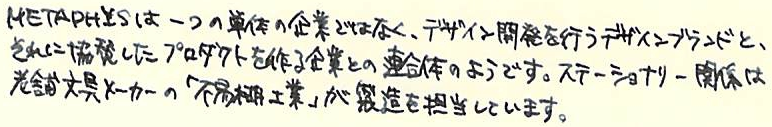 METAPHYSは一つの単体の企業ではなく、デザイン開発を行うデザインブランドと、
それに協賛したプロダクトを作る企業との連合体のようです。ステーショナリー関係は
老舗文具メーカーの「不易糊工業」が製造を担当しています。